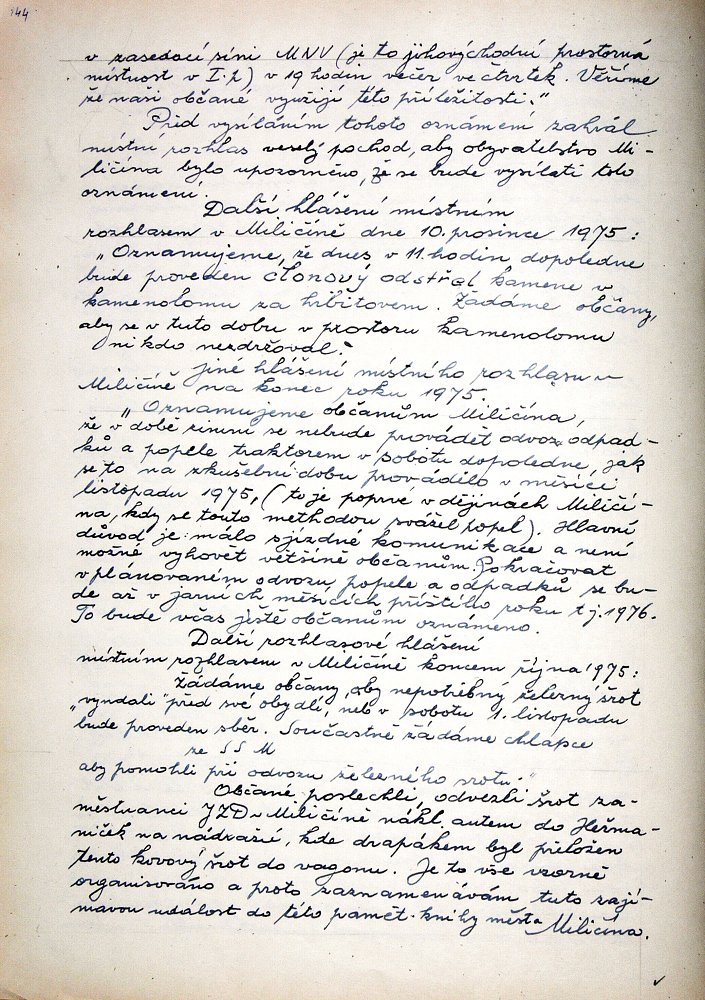 144
v zasedací síni MNV (je to jihovýchodní prostorná
místnost v I. p.) v 19 hodin večer ve čtvrtek. Věříme
že naši občané využijí této příležitosti."
Před vysíláním tohoto oznámení zahrál
místní rozhlas veselý pochod, aby obyvatelstvo Mi-
ličína bylo upozorněno, že se bude vysílati toto
oznámení.
Další hlášení místním
rozhlasem v Miličíně dne 10. prosince 1975:
"Oznamujeme, že dnes v 11 hodin dopoledne
bude proveden clonový odstřel kamene v
kamenolomu za hřbitovem. Žádáme občany,
aby se v tuto dobu v prostoru kamenolomu
nikdo nezdržoval."
jiné hlášení místního rozhlasu v
Miličíně na konec roku 1975.
"Oznamujeme občanům Miličína,
že v době zimní se nebude provádět odvoz odpad-
ků a popele traktorem v sobotu dopoledne, jak
se to na zkušební dobu provádělo v měsíci
listopadu 1975, (to je poprvé v dějinách Miličí-
na, kdy se touto methodou svážel popel). Hlavní
důvod je málo sjízdné komunikace a není
možné vyhovět většině občanům. Pokračovat
v plánovaném odvozu popele a odpadků se bu-
de až v jarních měsících příštího roku t.j. 1976.
To bude včas ještě občanům oznámeno.
Další rozhlasové hlášení
místním rozhlasem v Miličíně koncem října 1975:
Žádáme občany, aby nepotřebný železný šrot
"vyndali" před své obydlí, neb v sobotu 1. listopadu
bude proveden sběr. Současně žádáme chlapce
ze SSM
aby pomohli při odvozu železného šrotu."
Občané poslechli, odvezli šrot za-
městnanci JZD v Miličíně nákl. autem do Heřma-
niček na nádraží, kde drapákem byl přeložen
tento kovový šrot do vagonu. Je to vše vzorně
organisováno a proto zaznamenávám tuto zají-
mavou událost do této pamět. knihy města Miličína.